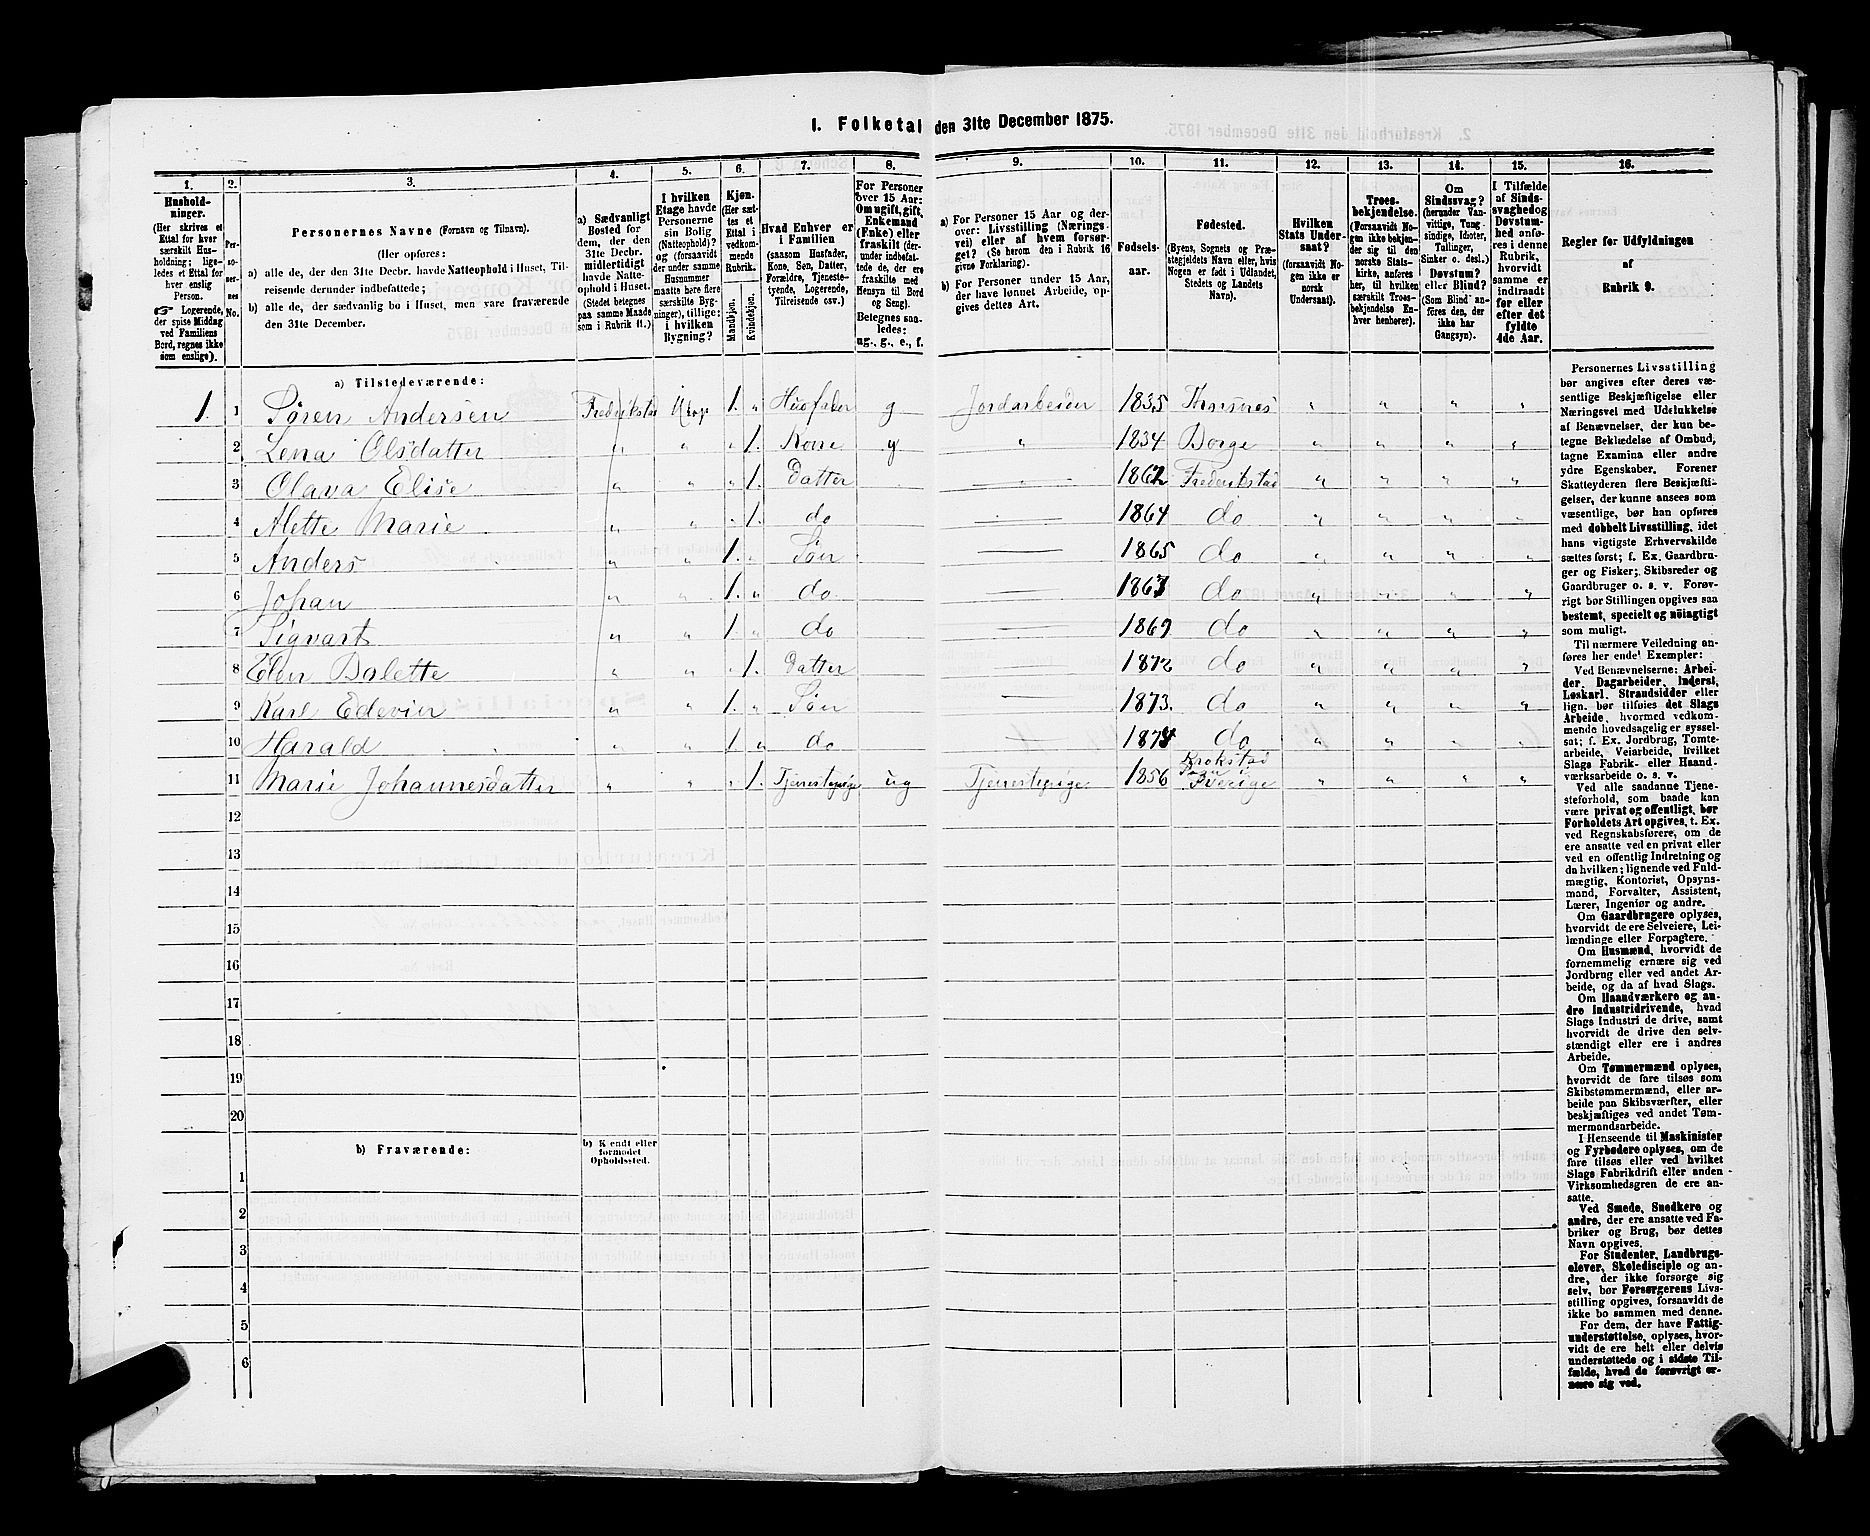 1. Folketal den 31te December 1875.
1. 2. 3. 4. 5. 6. 7. 8. 9. 10. 11. 12. 13. 14. 15. 16.
Hushold-
ninger.
(Her skrives et
Ettal for hver
særskilt Hus-
holdning; lige-
ledes et Ettal for
hver enslig
Person.
☞ Logerende,
der spise Middag
ved Familiens
Bord, regnes ikke
som enslige).
Per-
so-
ner-
nes
No.
Personernes Navne (Fornavn og Tilnavn).
(Her opføres:
a) alle de, der den 31te Decbr. havde Natteophold i Huset, Til-
reisende derunder indbefattede;
b) alle de, der sædvanlig bo i Huset, men vare fraværende
den 31te December.
a) Sædvanligt
Bosted for
dem, der den
31te Decbr.
midlertidigt
havde Natte-
ophold i Huset.
(Stedet betegnes
paa samme Maade
som i Rubrik 11.)
I hvilken
Etage havde
Personerne
sin Bolig
(Natteophold)?
og (forsaavidt
der under samme
Husnummer
maatte høre flere
særskilte Byg-
ninger), tillige:
i hvilken
Bygning?
Kjøn.
(Her sæt-
tes et
Ettal i
vedkom-
mende
Rubrik.
Mandkjøn.
Kvindekjøn.
Hvad Enhver er
i Familien
(saasom Husfader,
Kone, Søn, Datter,
Forældre, Tjeneste-
tyende, Logerende,
Tilreisende osv.)
For Personer
over 15 Aar:
Om ugift, gift,
Enkemand
(Enke) eller
fraskilt (der-
under indbefat-
tede de, der ere
fraskilte med
Hensyn til Bord
og Seng).
Betegnes saa-
ledes:
ug., g., e., f.
a) For Personer 15 Aar og der-
over: Livsstilling (Nærings-
vei) eller af hvem forsør-
get? (Se herom den i Rubrik 16
givne Forklaring).
b) For Personer under 15 Aar,
der have lønnet Arbeide, op-
gives dettes Art.
Fødsels-
aar.
Fødested.
(Byens, Sognets og Præ-
stegjeldets Navn eller, hvis
Nogen er født i Udlandet,
Stedets og Landets
Navn).
Hvilken
Stats Under-
saat?
(forsaavidt No-
gen ikke er
norsk
Undersaat).
Troes-
bekjendelse.
(Forsaavidt No-
gen ikke bekjen-
der sig til den
norske Stats-
kirke, anføres
her, til hvilken
særskilt Troes-
bekjendelse En-
hver henhører).
Om
Sindssvag?
(herunder Van-
vittige, Tung-
sindige, Idioter,
Tullinger,
Sinker o. desl.)
Døvstum?
eller Blind?
(Som Blind an-
føres den, der
ikke har
Gangsyn).
I Tilfælde
af Sinds-
svaghed og
Døvstum-
hed anfø-
res i denne
Rubrik,
hvorvidt
samme er
indtraadt
før eller
efter det
fyldte
4de Aar.
Regler for Udfyldningen
af
Rubrik 9.
a) Tilstedeværende:
1. 1 Søren Andersen Frederikstad 1. „ Husfader g Jordarbeider 1835 „ „ „ „
2 Lena Olsdatter „ „ „ 1. Kone g „ 1834 Borge „ „ „ „
3 Olava Elise „ „ „ 1. Datter 1862 Frederikstad „ „ „ „
4 Alette Marie „ „ „ 1. do 1864 do „ „ „ „
5 Anders „ „ 1. „ Søn 1865 do „ „ „ „
6 Johan „ „ 1. „ do 1867 do „ „ „ „
7 Sigvart „ „ 1. „ do 1869 do „ „ „ „
8 Elen Bolette „ „ „ 1. Datter 1872 do „ „ „ „
9 Karl Edevin „ „ 1. „ Søn 1873. do „ „ „ „
10 Harald „ „ 1. „ do 1874 do „ „ „ „
11 Marie Johannesdatter „ „ „ 1. Tjenestepige ug Tjenestepige 1856 „ „ „ „
12
13
14
15
16
17
18
19
20
b) Fraværende:
b) Kjendt eller
formodet
Opholdssted.
1
2
3
4
5
6
Personernes Livsstilling
bør angives efter deres væ-
sentlige Beskjæftigelse eller
Næringsvei med Udelukkelse
af Benævnelser, der kun be-
tegne Beklædelse af Ombud,
tagne Examina eller andre
ydre Egenskaber. Forener
Skatteyderen flere Beskjæfti-
gelser, der kunne ansees som
væsentlige, bør han opføres
med dobbelt Livsstilling, idet
hans vigtigste Erhvervskilde
sættes først; f. Ex. Gaardbru-
ger og Fisker; Skibsreder og
Gaardbruger o. s. v. Forøv-
rigt bør Stillingen opgives saa
bestemt, specielt og nøiagtigt
som muligt.
Til nærmere Veiledning an-
føres her endel Exempler:
Ved Benævnelserne: Arbei-
der, Dagarbeider, Inderst,
Løskarl, Strandsidder eller
lign. bør tilføies det Slags
Arbeide, hvormed vedkom-
mende hovedsagelig er syssel-
sat; f. Ex. Jordbrug, Tomte-
arbeide, Veiarbeide, hvilket
Slags Fabrik- eller Haand-
værksarbeide o. s. v.
Ved alle saadanne Tjene-
steforhold, som baade kan
være privat og offentligt, bør
Forholdets Art opgives, t. Ex.
ved Regnskabsførere, om de
ere ansatte ved en privat eller
ved en offentlig Indretning og
da hvilken; lignende ved Fuld-
mægtig, Kontorist, Opsyns-
mand, Forvalter, Assistent,
Lærer, Ingeniør og andre.
Om Gaardbrugere oplyses,
hvorvidt de ere Selveiere, Lei-
lændinge eller Forpagtere.
Om Husmænd, hvorvidt de
fornemmelig ernære sig ved
Jordbrug eller ved andet Ar-
beide, og da af hvad Slags.
Om Haandværkere og an-
dre Industridrivende, hvad
Slags Industri de drive, samt
hvorvidt de drive den selv-
stændigt eller ere i andres
Arbeide.
Om Tømmermænd oplyses,
hvorvidt de fare tilsøs som
Skibstømmermænd, eller ar-
beide paa Skibsværfter, eller
beskjæftiges ved andet Tøm-
mermandsarbeide.
I Henseende til Maskinister
og Fyrbødere oplyses, om de
fare tilsøs eller ved hvilket
Slags Fabrikdrift eller anden
Virksomhedsgren de ere an-
satte.
Ved Smede, Snedkere og
andre, der ere ansatte ved Fa-
briker og Brug, bør dettes
Navn opgives.
For Studenter, Landbrugs-
elever, Skoledisciple og an-
dre, der ikke forsørge sig
selv, bør Forsørgerens Livs-
stilling opgives, forsaavidt de
ikke bo sammen med denne.
For dem, der have Fattig-
understøttelse, oplyses, hvor-
vidt de ere helt eller delvis
understøttede og i sidste Til-
fælde, hvad de forøvrigt er-
nære sig ved.